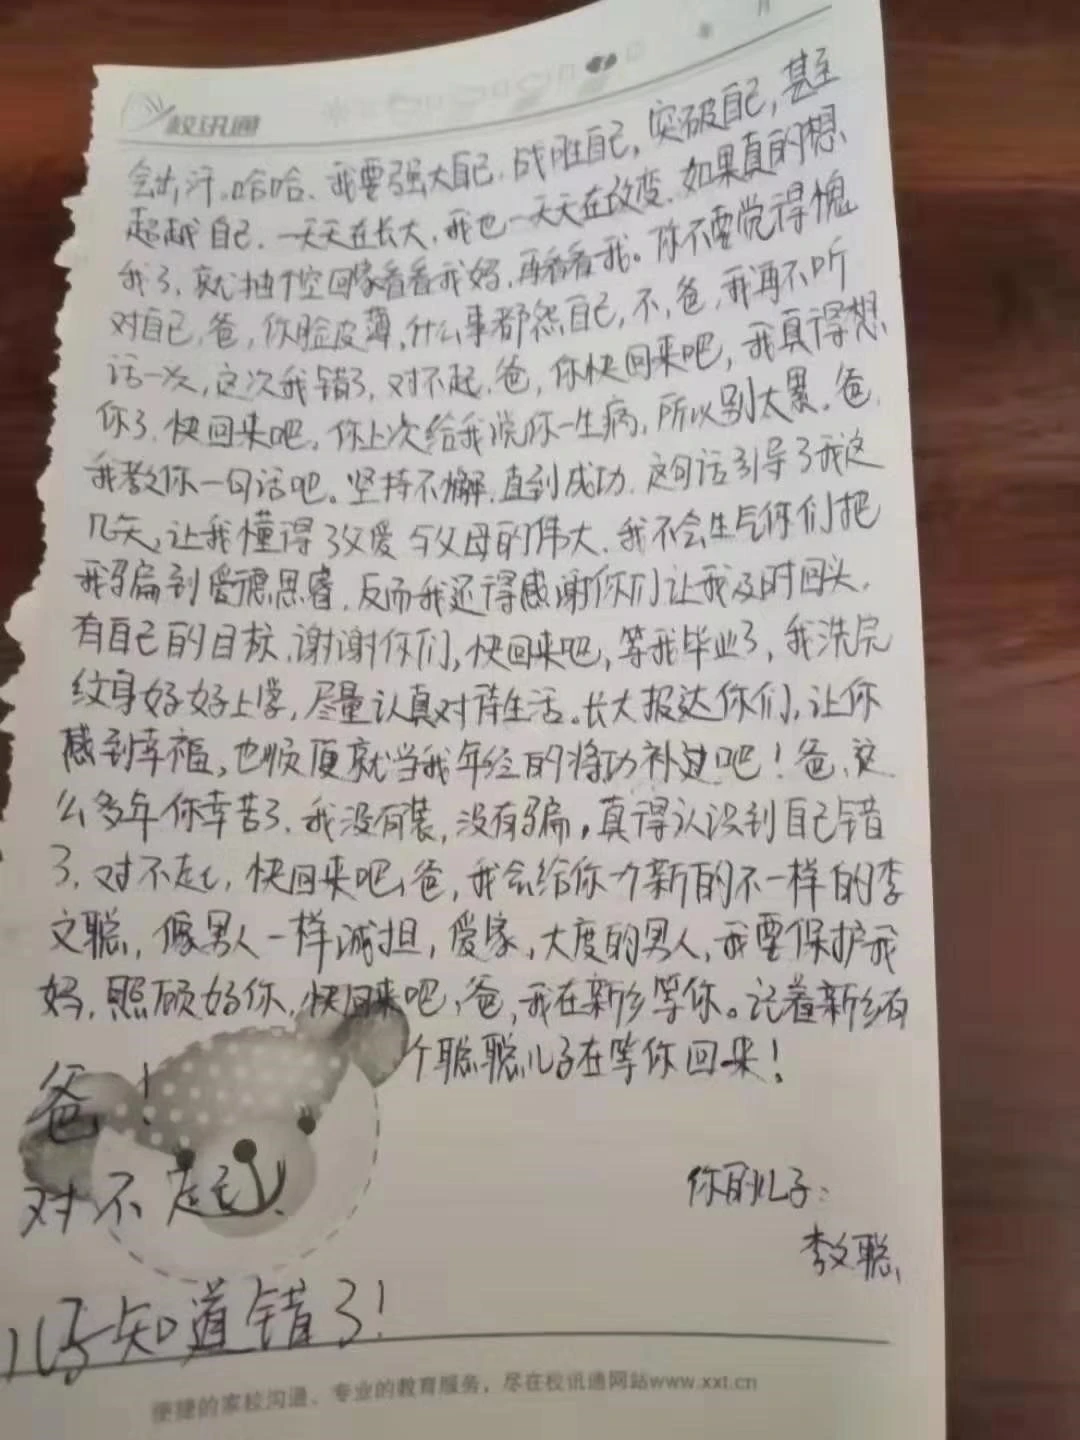 校讯通
月
会出汗。哈哈、我要强大自己,战胜自己,突破自己,甚至
超越自己.一天天在长大,我也一天天在改变.如果真的想
我了,就抽个空回家看看我妈,再看看我。你不要觉得愧
对自己,爸,你脸皮薄,什么事都怨自己,不,爸,我再不听
话一次,这次我错了,对不起,爸,你快回来吧,我真得想
你了,快回来吧,你上次给我说你一生病,所以别太累.爸.
我教你一句话吧。坚持不懈,直到成功.这句话引导了我这
几天,让我懂得了父爱与父母的伟大.我不会生气你们把
我骗到爱德思睿.反而我还得感谢你们让我及时回头.
有自己的目标,谢谢你们,快回来吧,等我毕业了,我洗完
纹身好好上学,尽量认真对待生活。长大报达你们,让你
感到幸福,也顺便就当我年轻的将功补过吧!爸,这
么多年你幸苦了.我没有装,没有骗,真得认识到自己错
了,对不起,快回来吧,爸,我会给你个新的不一样的李
文聪,像男人一样 担,爱家,大度的男人,我要保护我
妈,照顾好你,快回来吧,爸,我在新乡等你。记着新乡有
个聪聪儿子在等你回来!
爸!
对不起、
你的儿子:
李文聪
儿子知道错了!
便捷的家校沟通、专业的教育服务,尽在校讯通网站www.xxt.cn